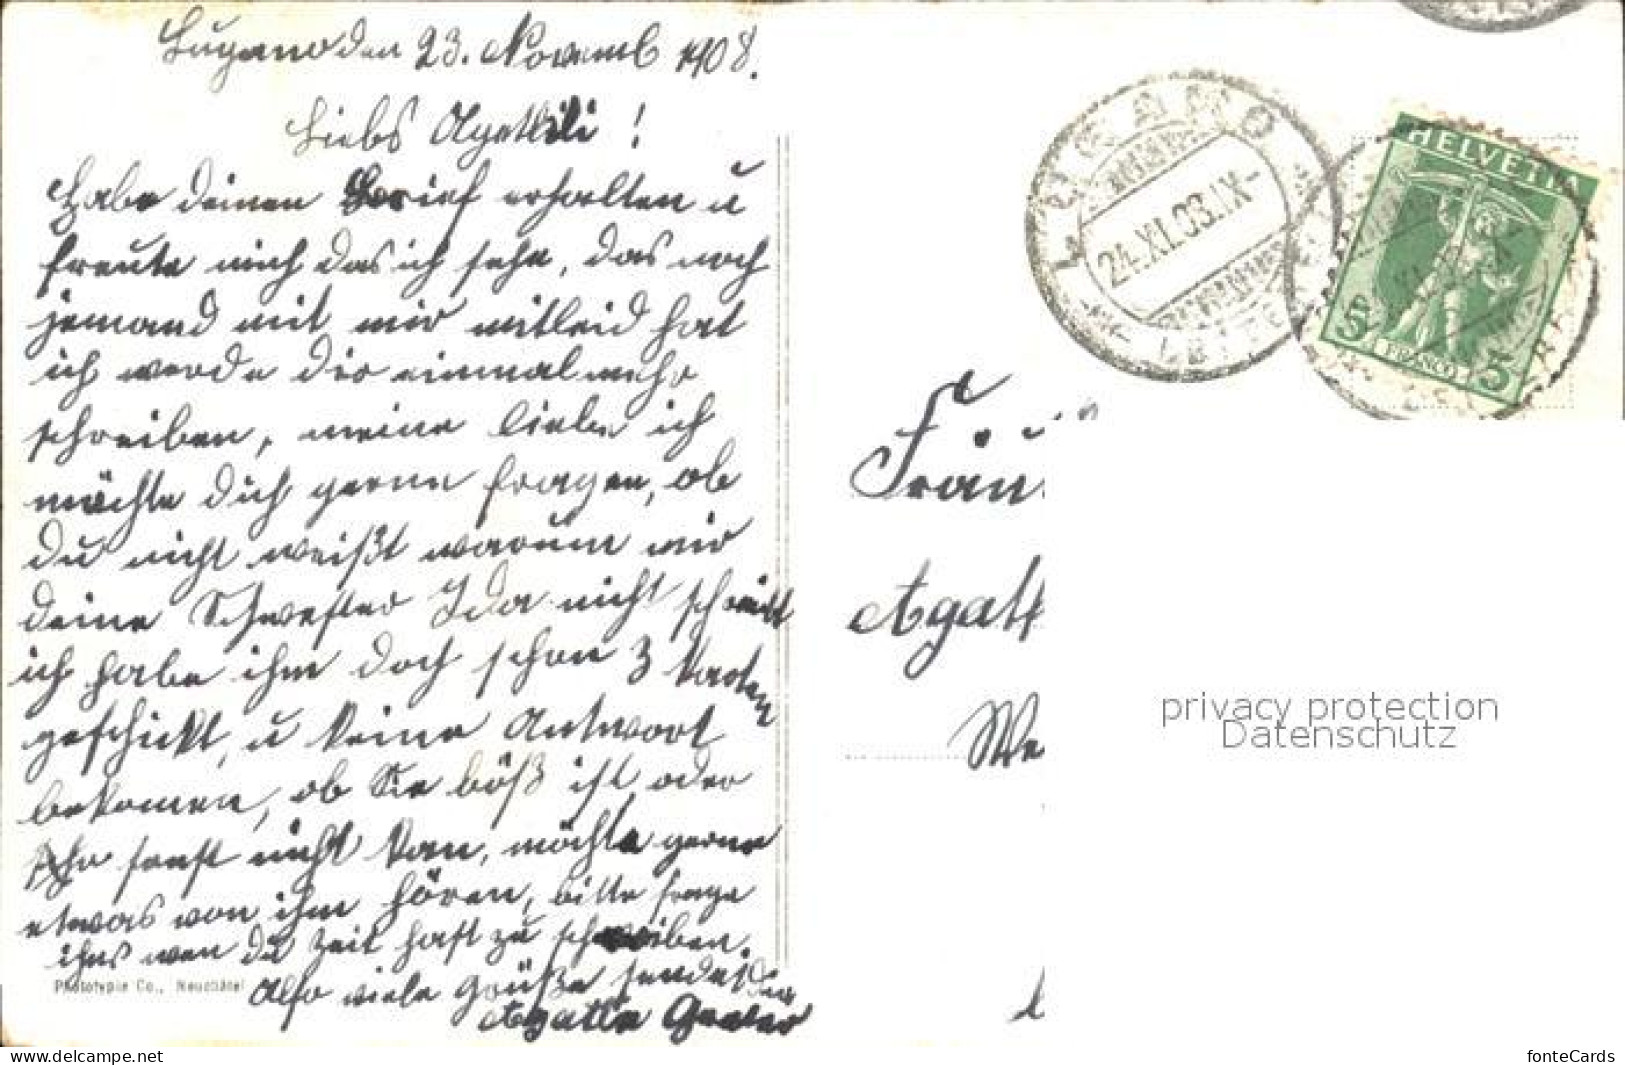 Lugano den 23. Novemb 1908.
Liebs Agathli !
Habe deinen Brief erhalten u
freute mich das ich sehe, das noch
jemand mit mir mitleid hat
ich werde dir einmal mehr
schreiben, meine liebe ich
möchte dich gerne fragen, ob
du nicht weißt warum mir
deine Schwester Ida nicht schreibt
ich habe ihm doch schon 3 Karten
geschickt, u keine Antwort
bekomen, ob Sie böß ist oder
sonst nicht kan, möchte gerne
etwas von ihm hören, bitte frage
ihns wen du Zeit hast zu schreiben.
Also viele Grüße sendet dir
Agatha
Phototypie Co., Neuchâtel
LUGANO
24.XI.08.IX-
LETTERE
HELVETIA
5 FRANCO 5
Fräul
Agath
We
privacy protection
Datenschutz
www.delcampe.net
fonteCards